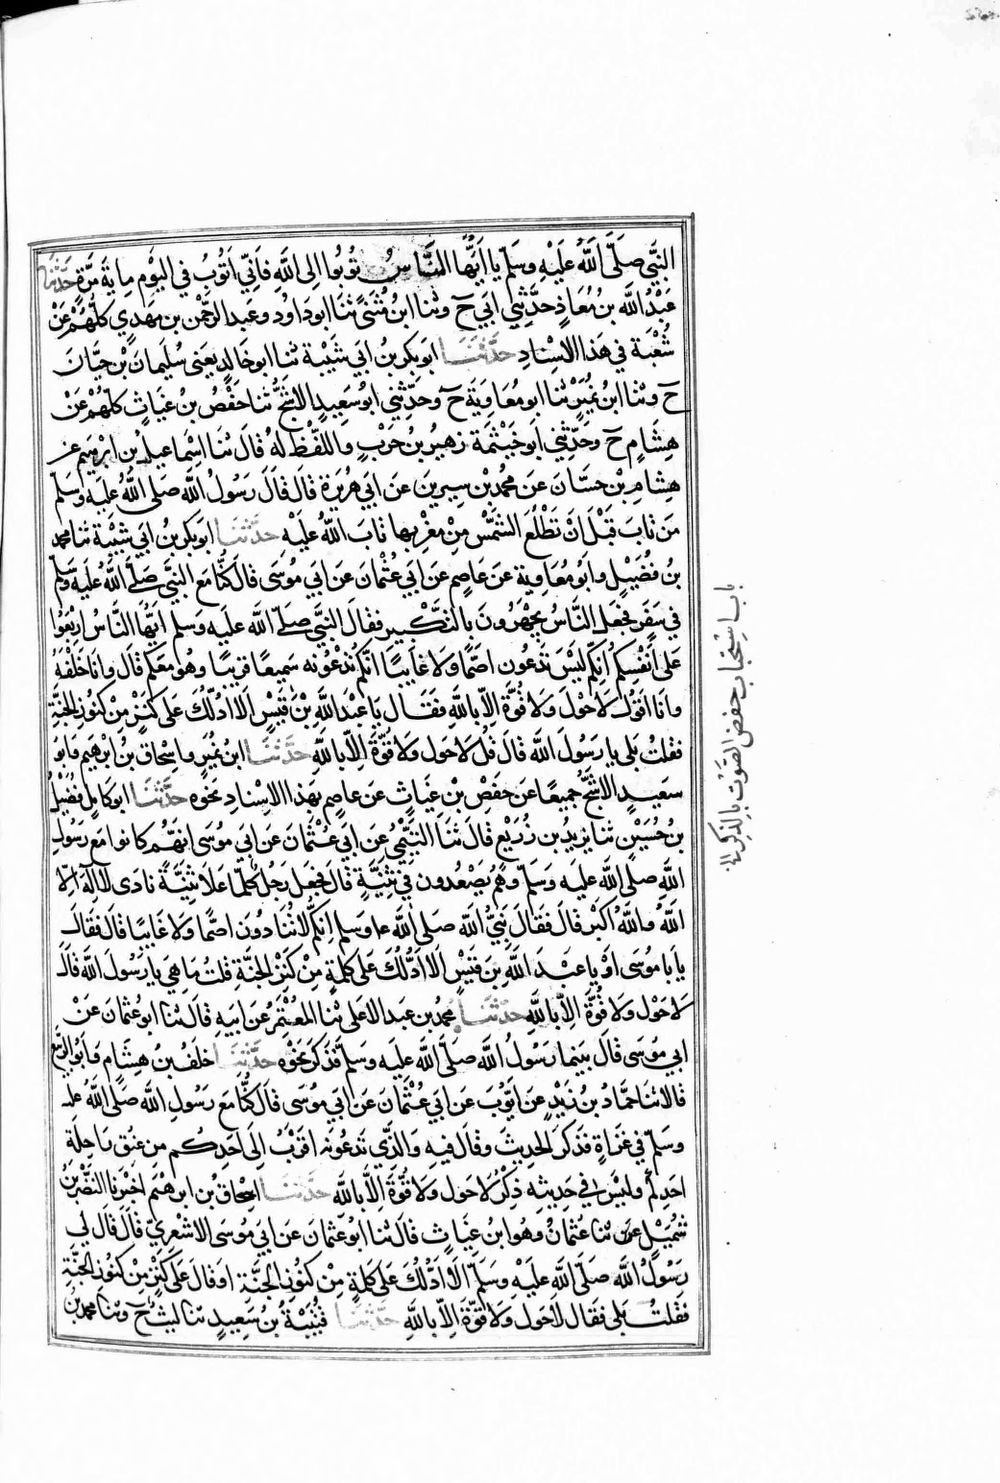 النبي صلى الله عليه وسلم يا ايها الناس توبوا الى الله فاني اتوب في اليوم ماية مرة حدثنا
عبد الله بن معاذ حدثني ابي ح وثنا ابن مثنى ثنا ابو داود وعبد الرحمن بن مهدي كلهم عن
شعبة في هذا الاسناد حدثنا ابو بكر بن ابي شيبة ثنا ابو خالد يعني سليمان بن حيان
ح وثنا ابن نمير ثنا ابو معاوية ح وحدثني ابو سعيد الاشج ثنا حفص بن غياث كلهم عن
هشام ح وحدثني ابو خيثمة زهير بن حرب واللفظ له قال ثنا اسماعيل بن ابرهيم عن
هشام بن حسان عن محمد بن سيرين عن ابي هريرة قال قال رسول الله صلى الله عليه وسلم
من تاب قبل ان تطلع الشمس من مغربها تاب الله عليه حدثنا ابو بكر بن ابي شيبة ثنا محمد
بن فضيل وابو معاوية عن عاصم عن ابي عثمان عن ابي موسى قال كنا مع النبي صلى الله عليه وسلم
في سفر فجعل الناس يجهرون بالتكبير فقال النبي صلى الله عليه وسلم ايها الناس اربعوا
على انفسكم انكم ليس تدعون اصما ولا غايبا انكم تدعونه سميعا قريبا وهو معكم قال وانا خلفه
وانا اقول لا حول ولا قوة الا بالله فقال يا عبد الله بن قيس الا ادلك على كنز من كنوز الجنة
فقلت بلى يا رسول الله قال قل لا حول ولا قوة الا بالله حدثنا ابن نمير واسحاق بن ابرهيم وابو
سعيد الاشج جميعا عن حفص بن غياث عن عاصم بهذا الاسناد نحوه حدثنا ابو كامل فضيل
بن حسين ثنا يزيد بن زريع قال ثنا التيمي عن ابي عثمان عن ابي موسى انهم كانوا مع رسول
الله صلى الله عليه وسلم وهم يصعدون في ثنية قال فجعل رجل كلما علا ثنية نادى لا اله الا
الله والله اكبر قال فقال نبي الله صلى الله عليه وسلم انكم لا تنادون اصما ولا غايبا قال فقال
يا با موسى او يا عبد الله بن قيس الا ادلك على كلمة من كنز الجنة قلت ما هي يا رسول الله قال
لا حول ولا قوة الا بالله حدثنا محمد بن عبد الاعلى ثنا المعتمر عن ابيه قال ثنا ابو عثمان عن
ابي موسى قال بينما رسول الله صلى الله عليه وسلم فذكر نحوه حدثنا خلف بن هشام وابو الربيع
قالا ثنا حماد بن زيد عن ايوب عن ابي عثمان عن ابي موسى قال كنا مع رسول الله صلى الله عليه
وسلم في غزاة فذكر الحديث وقال فيه والذي تدعونه اقرب الى احدكم من عنق راحلة
احدكم وليس في حديثه ذكر لا حول ولا قوة الا بالله حدثنا اسحاق بن ابرهيم اخبرنا النضر بن
شميل ثنا عثمان وهو ابن غياث قال ثنا ابو عثمان عن ابي موسى الاشعري قال قال لي
رسول الله صلى الله عليه وسلم الا ادلك على كلمة من كنوز الجنة او قال على كنز من كنوز الجنة
فقلت بلى فقال لا حول ولا قوة الا بالله حدثنا قتيبة بن سعيد ثنا ليث ح وثنا محمد بن
باب استحباب خفض الصوت بالذكر